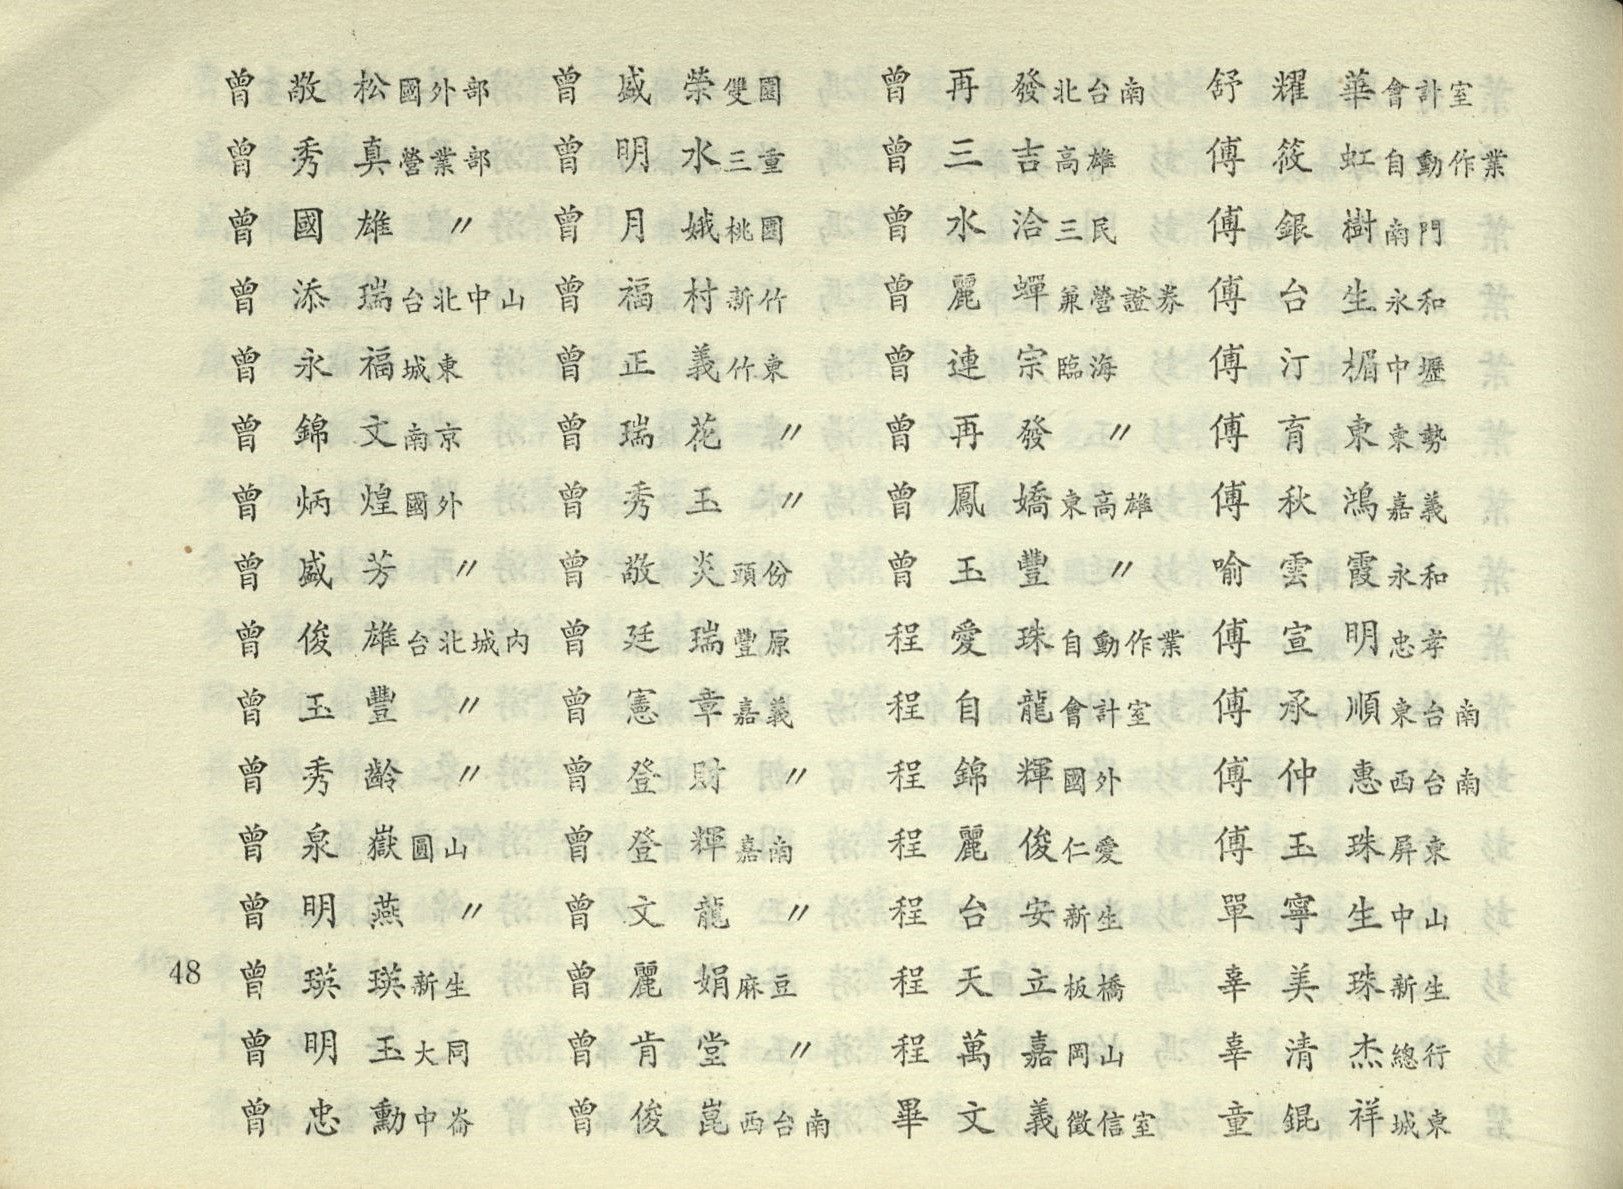 曾敬松國外部
曾秀真營業部
曾國雄〃
曾添瑞台北中山
曾永福城東
曾錦文南京
曾炳煌國外
曾盛芳〃
曾俊雄台北城內
曾玉豐〃
曾秀齡〃
曾泉嶽圓山
曾明燕〃
曾瑛瑛新生
曾明玉大同
曾忠勳中崙
曾盛榮雙園
曾明水三重
曾月娥桃園
曾福村新竹
曾正義竹東
曾瑞花〃
曾秀玉〃
曾敬炎頭份
曾廷瑞豐原
曾憲章嘉義
曾登財〃
曾登輝嘉南
曾文龍〃
曾麗娟麻豆
曾肯堂〃
曾俊崑西台南
曾再發北台南
曾三吉高雄
曾水治三民
曾麗蟬兼營證券
曾連宗臨海
曾再發〃
曾鳳嬌東高雄
曾玉豐〃
程愛珠自動作業
程自龍會計室
程錦輝國外
程麗俊仁愛
程台安新生
程天立板橋
程萬嘉岡山
畢文義徵信室
舒耀華會計室
傅筱虹自動作業
傅銀樹南門
傅台生永和
傅汀楣中壢
傅育東東勢
傅秋鴻嘉義
喻雲霞永和
傅宣明忠孝
傅承順東台南
傅仲惠西台南
傅玉珠屏東
單寧生中山
辜美珠新生
辜清杰總行
童錕祥城東
48